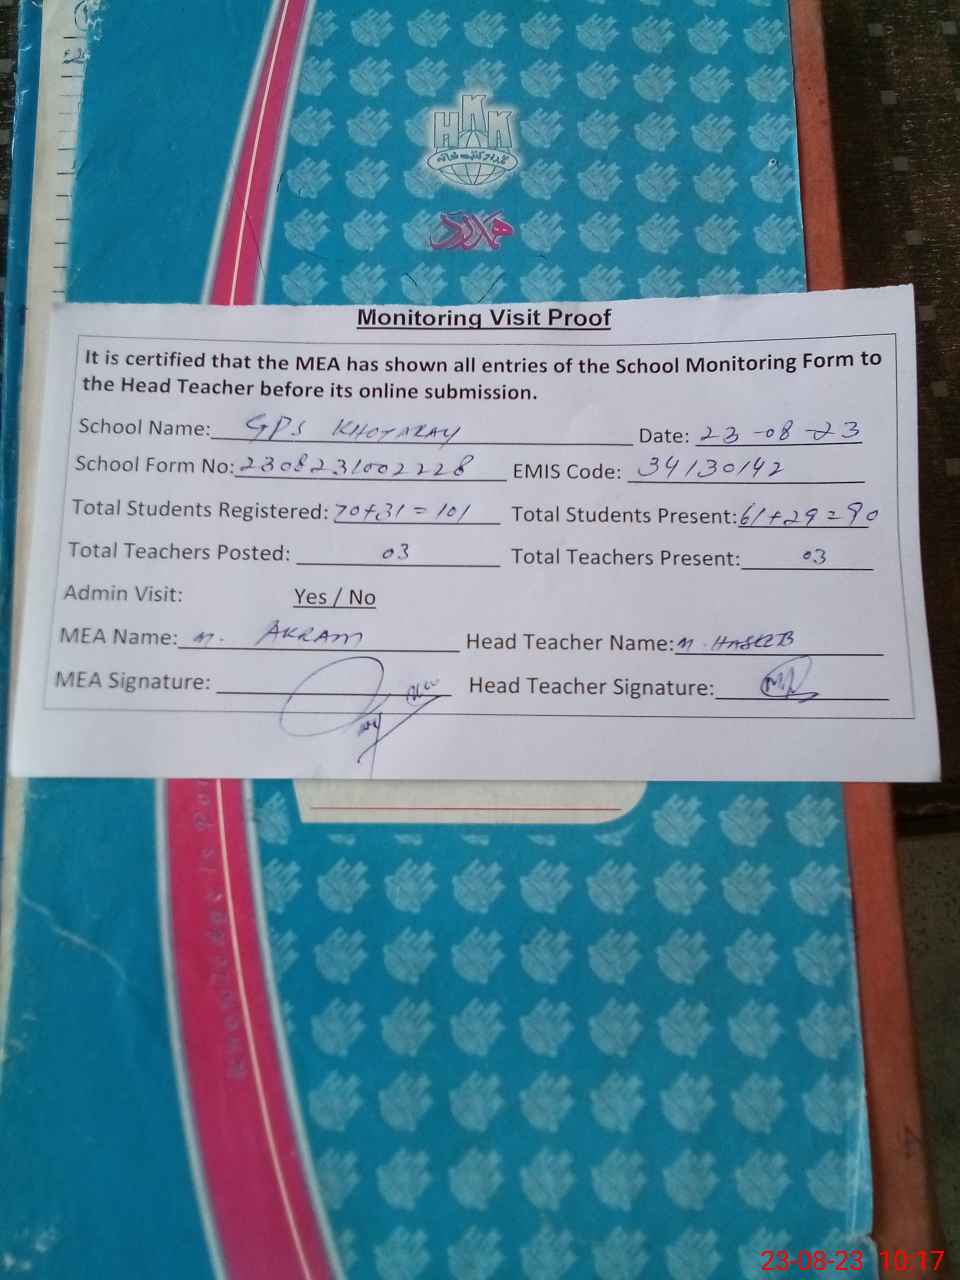 HKK
Monitoring Visit Proof
It is certified that the MEA has shown all entries of the School Monitoring Form to
the Head Teacher before its online submission.
School Name: GPS KHOTARAY Date: 23-08-23
School Form No: 2308231002228 EMIS Code: 34130142
Total Students Registered: 70+31=101 Total Students Present: 61+29=90
Total Teachers Posted: 03 Total Teachers Present: 03
Admin Visit: Yes / No
MEA Name: M. AKRAM Head Teacher Name: M. HASEEB
MEA Signature: Head Teacher Signature:
23-08-23 10:17